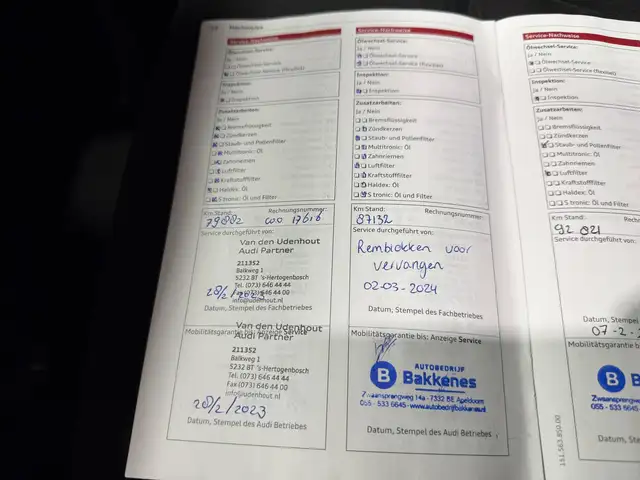 Nachweise
Service-Nachweise
Ölwechsel-Service:
Ja / Nein
Ölwechsel-Service
Ölwechsel-Service (flexibel)
Inspektion:
Ja / Nein
Inspektion
Zusatzarbeiten:
Ja / Nein
Bremsflüssigkeit
Zündkerzen
Staub- und Pollenfilter
Multitronic: Öl
Zahnriemen
Luftfilter
Kraftstofffilter
Haldex: Öl
S tronic: Öl und Filter
Km Stand: Rechnungsnummer
79882 17616
Service durchgeführt von:
Van den Udenhout
Audi Partner
211352
Balkweg 1
5232 BT 's-Hertogenbosch
Tel. (073) 646 44 44
Fax (073) 646 44 00
info@udenhout.nl
28/2/2023
Datum, Stempel des Fachbetriebes
Mobilitätsgarantie bis: Anzeige Service
Van den Udenhout
Audi Partner
211352
Balkweg 1
5232 BT 's-Hertogenbosch
Tel. (073) 646 44 44
Fax (073) 646 44 00
info@udenhout.nl
28/2/2023
Datum, Stempel des Audi Betriebes
Service-Nachweise
Ölwechsel-Service:
Ja / Nein
Ölwechsel-Service
Ölwechsel-Service (flexibel)
Inspektion:
Ja / Nein
Inspektion
Zusatzarbeiten:
Ja / Nein
Bremsflüssigkeit
Zündkerzen
Staub- und Pollenfilter
Multitronic: Öl
Zahnriemen
Luftfilter
Kraftstofffilter
Haldex: Öl
S tronic: Öl und Filter
Km Stand: Rechnungsnummer
87132
Service durchgeführt von:
Remblokken voor
vervangen
02-03-2024
Datum, Stempel des Fachbetriebes
Mobilitätsgarantie bis: Anzeige Service
AUTOBEDRIJF
B Bakkenes
Zwaansprengweg 14a - 7332 BE Apeldoorn
055 - 533 6645 - www.autobedrijfbakkenes.nl
Datum, Stempel des Audi Betriebes
Service-Nachweise
Ölwechsel-Service:
Ja / Nein
Ölwechsel-Service
Ölwechsel-Service (flexibel)
Inspektion:
Ja / Nein
Inspektion
Zusatzarbeiten:
Ja / Nein
Bremsflüssigkeit
Zündkerzen
Staub- und Pollenfilter
Multitronic: Öl
Zahnriemen
Luftfilter
Kraftstofffilter
Haldex: Öl
S tronic: Öl und Filter
Km Stand: Rechnungs
92021
Service durchgeführt von:
Datum, Stempel
07-2-
Mobilitätsgarantie bis: Anze
B
Zwaansprengweg
055 - 533 6645
Datum, Stempel des
151.563.850.00